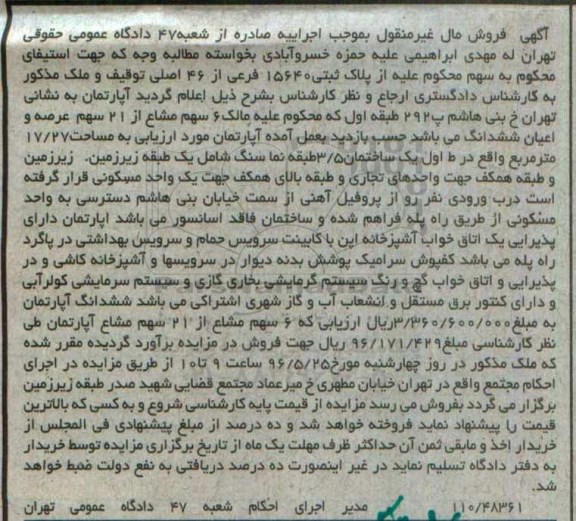 آگهی فروش مال غیرمنقول بموجب اجراییه صادره از شعبه۴۷ دادگاه عمومی حقوقی
تهران له مهدی ابراهیمی علیه حمزه خسروآبادی بخواسته مطالبه وجه که جهت استیفای
محکوم به سهم محکوم علیه از پلاک ثبتی۱۵۶۴۰ فرعی از ۴۶ اصلی توقیف و ملک مذکور
به کارشناس دادگستری ارجاع و نظر کارشناس بشرح ذیل اعلام گردید آپارتمان به نشانی
تهران خ بنی هاشم پ۲۹۲ طبقه اول که محکوم علیه مالک۶ سهم مشاع از ۲۱ سهم عرصه و
اعیان ششدانگ می باشد حسب بازدید بعمل آمده آپارتمان مورد ارزیابی به مساحت۱۷/۲۷
مترمربع واقع در ط اول یک ساختمان۳/۵طبقه نما سنگ شامل یک طبقه زیرزمین. زیرزمین
و طبقه همکف جهت واحدهای تجاری و طبقه بالای همکف جهت یک واحد مسکونی قرار گرفته
است درب ورودی نفر رو از پروفیل آهنی از سمت خیابان بنی هاشم دسترسی به واحد
مسکونی از طریق راه پله فراهم شده و ساختمان فاقد اسانسور می باشد اپارتمان دارای
پذیرایی یک اتاق خواب آشپزخانه اپن با کابینت سرویس حمام و سرویس بهداشتی در پاگرد
راه پله می باشد کفپوش سرامیک پوشش بدنه دیوار در سرویسها و آشپزخانه کاشی و در
پذیرایی و اتاق خواب گچ و رنگ سیستم گرمایشی بخاری گازی و سیستم سرمایشی کولرآبی
و دارای کنتور برق مستقل و انشعاب آب و گاز شهری اشتراکی می باشد ششدانگ آپارتمان
به مبلغ۳/۳۶۰/۶۰۰/۰۰۰ریال ارزیابی که ۶ سهم مشاع از ۲۱ سهم مشاع آپارتمان طی
نظر کارشناسی مبلغ۹۶/۱۷۱/۴۲۹ ریال جهت فروش در مزایده برآورد گردیده مقرر شده
که ملک مذکور در روز چهارشنبه مورخ۹۶/۵/۲۵ ساعت ۹ تا۱۰ از طریق مزایده در اجرای
احکام مجتمع واقع در تهران خیابان مطهری خ میرعماد مجتمع قضایی شهید صدر طبقه زیرزمین
برگزار می گردد بفروش می رسد مزایده از قیمت پایه کارشناسی شروع و به کسی که بالاترین
قیمت را پیشنهاد نماید فروخته خواهد شد و ده درصد از مبلغ پیشنهادی فی المجلس از
خریدار اخذ و مابقی ثمن آن حداکثر ظرف مهلت یک ماه از تاریخ برگزاری مزایده توسط خریدار
به دفتر دادگاه تسلیم نماید در غیر اینصورت ده درصد دریافتی به نفع دولت ضبط خواهد
شد.
۱۱۰/۴۸۳۶۱ مدیر اجرای احکام شعبه ۴۷ دادگاه عمومی تهران